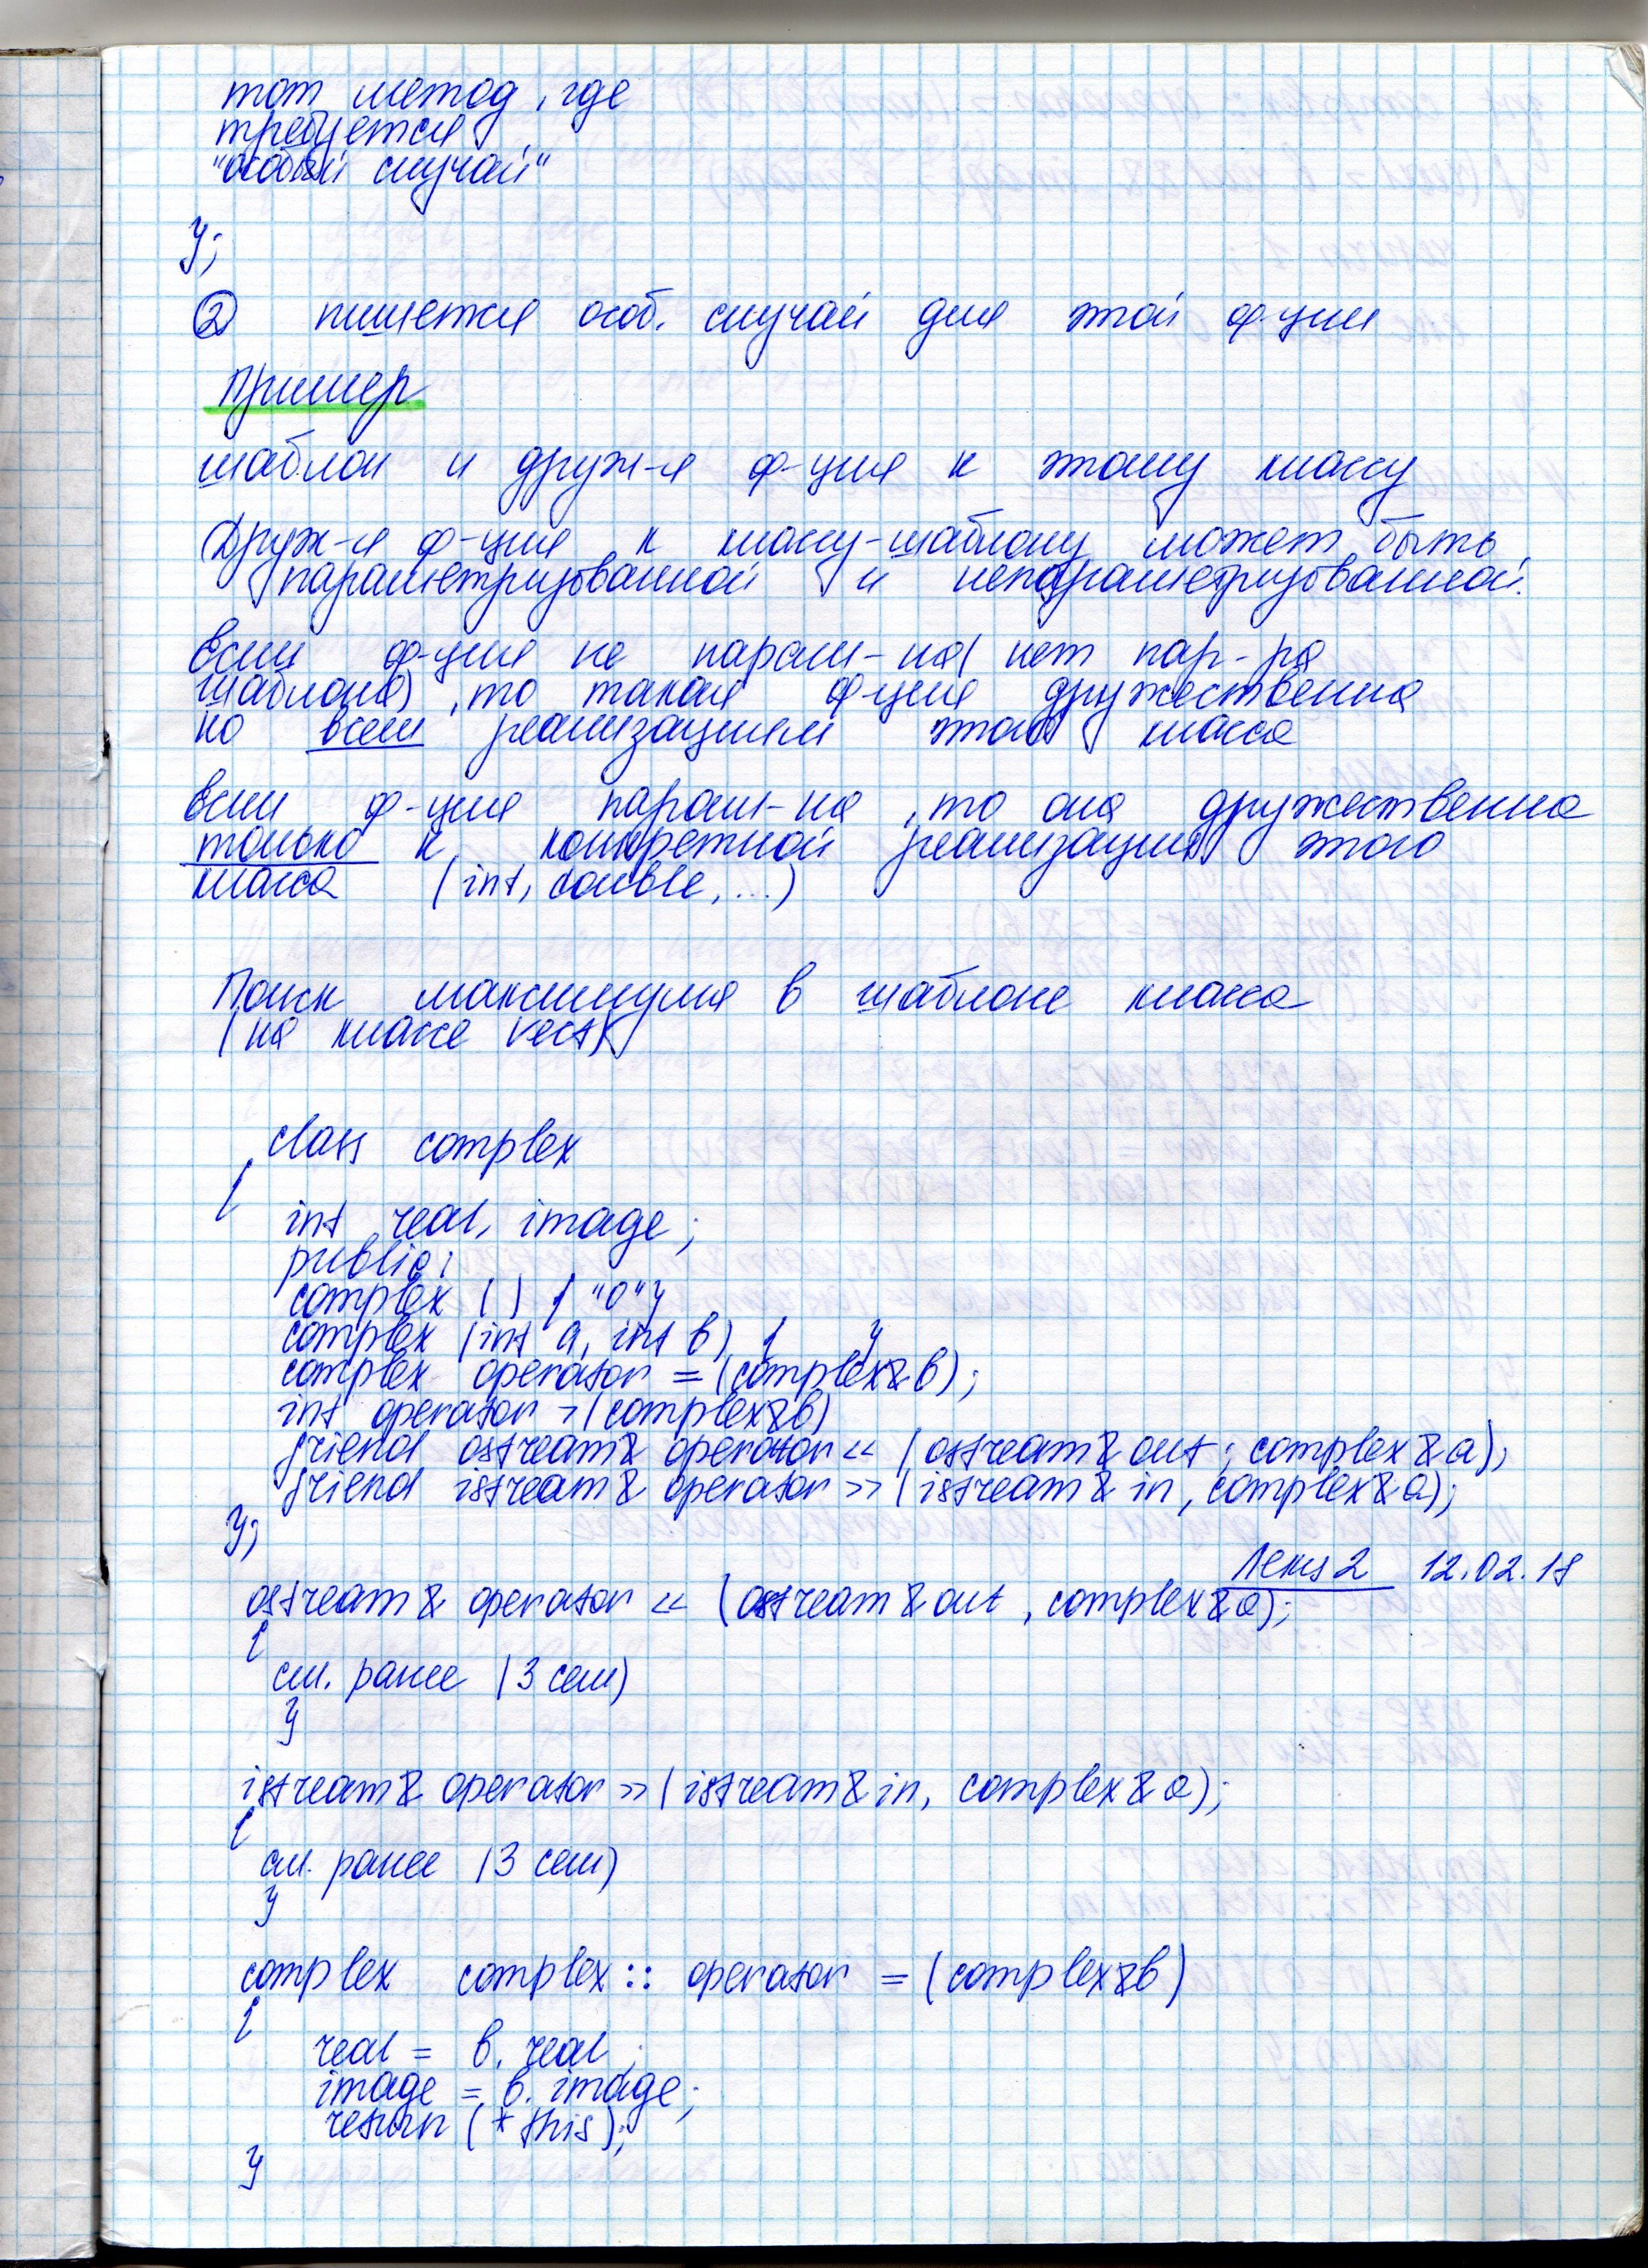 тот метод, где
требуется
"особый случай"
};
② пишется особ. случай для этой ф-ции
Пример
шаблон и друж-я ф-ция к этому классу
Друж-я ф-ция к классу-шаблону может быть
параметризованной и непараметризованной.
Если ф-ция не парам-на (нет пар-ра
шаблона), то такая ф-ция дружественна
ко всем реализациям этого класса
Если ф-ция парам-на, то она дружественна
только к конкретной реализации этого
класса (int, double, ...)
Поиск максимума в шаблоне класса
(на классе vect)
class complex
{
int real, image;
public:
complex () { "0" }
complex (int a, int b) { }
complex operator = (complex& b);
int operator > (complex& b)
friend ostream& operator << (ostream& out; complex& a);
friend istream& operator >> (istream& in, complex& a);
};
Лекц 2 12.02.18
ostream& operator << (ostream& out, complex& a);
{
см. ранее (3 сем)
}
istream& operator >> (istream& in, complex& a);
{
см. ранее (3 сем)
}
complex complex :: operator = (complex& b)
{
real = b. real;
image = b. image;
return (*this);
}